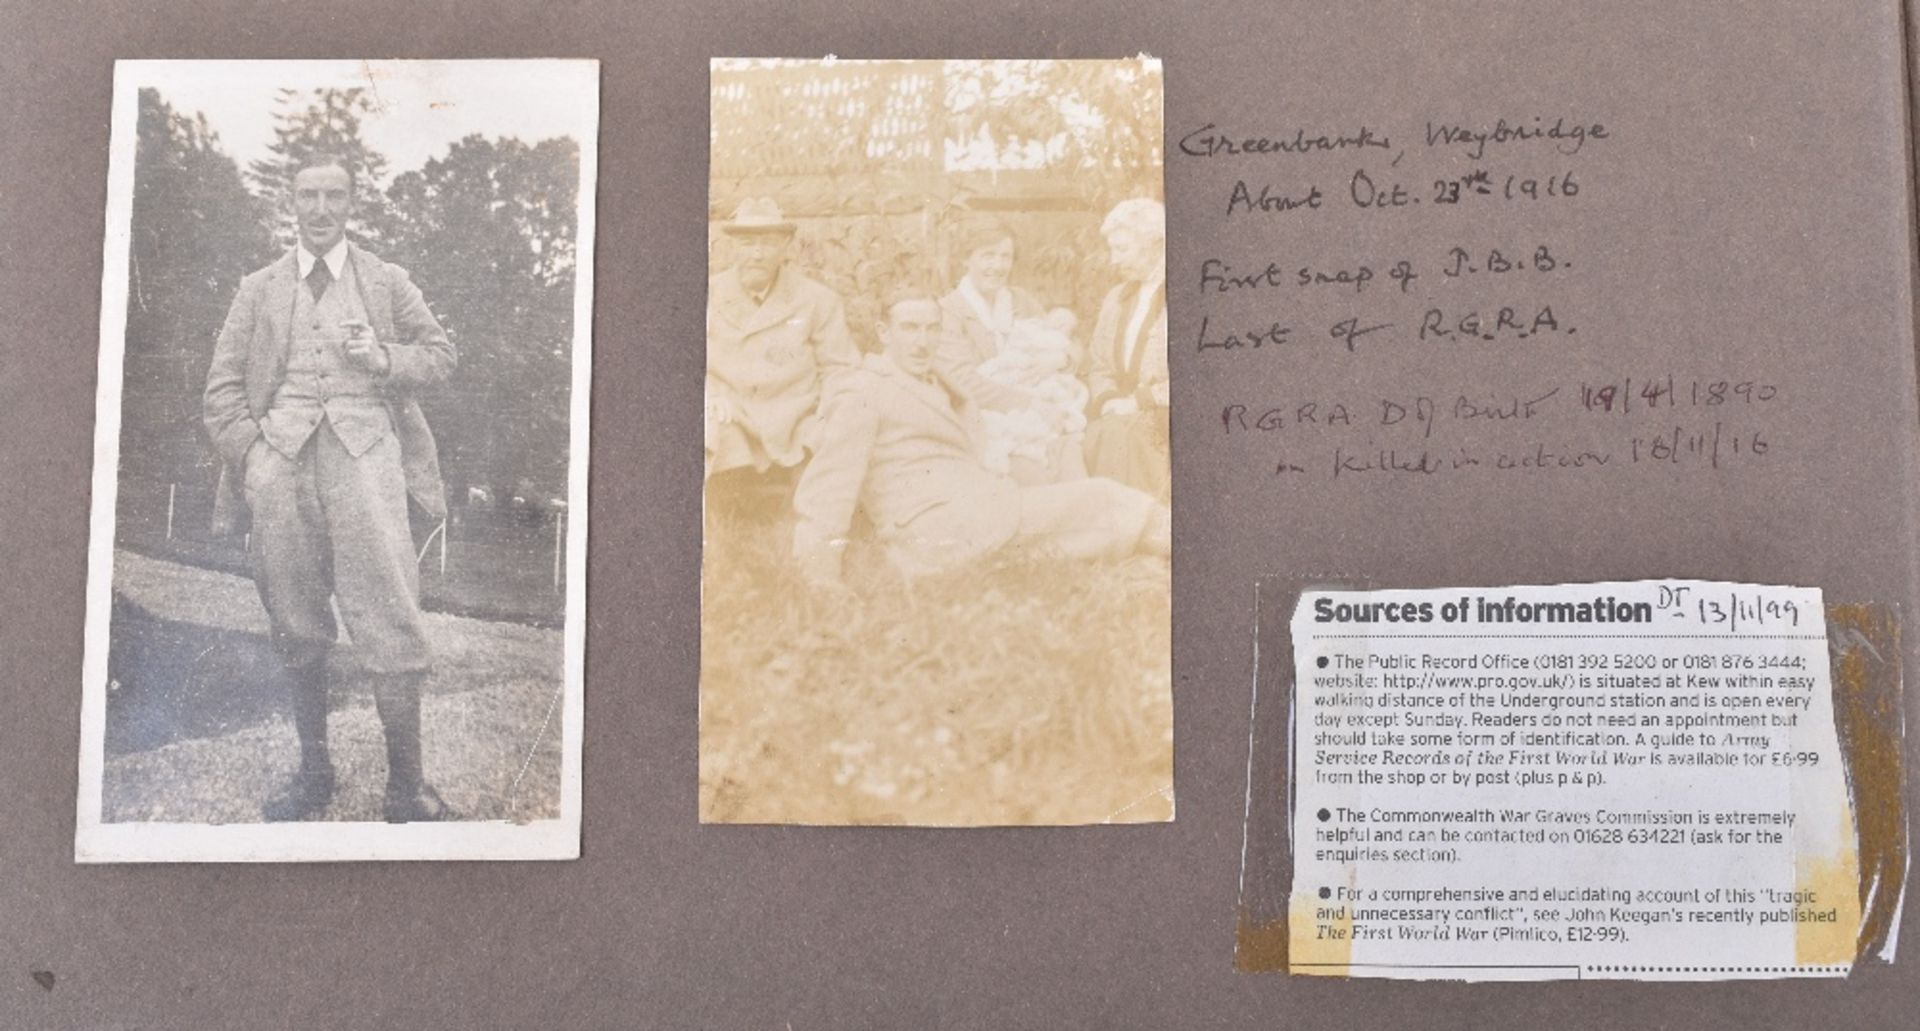 Greenbank, Weybridge
About Oct. 23rd 1916
First snap of J.B.B.
Last of R.G.R.A.
RGRA D of Birth /4/1890
Killed in action 18/11/16
Sources of information DT 13/11/99
● The Public Record Office (0181 392 5200 or 0181 876 3444;
website: http://www.pro.gov.uk/) is situated at Kew within easy
walking distance of the Underground station and is open every
day except Sunday. Readers do not need an appointment but
should take some form of identification. A guide to Army
Service Records of the First World War is available for £6·99
from the shop or by post (plus p & p).
● The Commonwealth War Graves Commission is extremely
helpful and can be contacted on 01628 634221 (ask for the
enquiries section).
● For a comprehensive and elucidating account of this "tragic
and unnecessary conflict", see John Keegan's recently published
The First World War (Pimlico, £12·99).